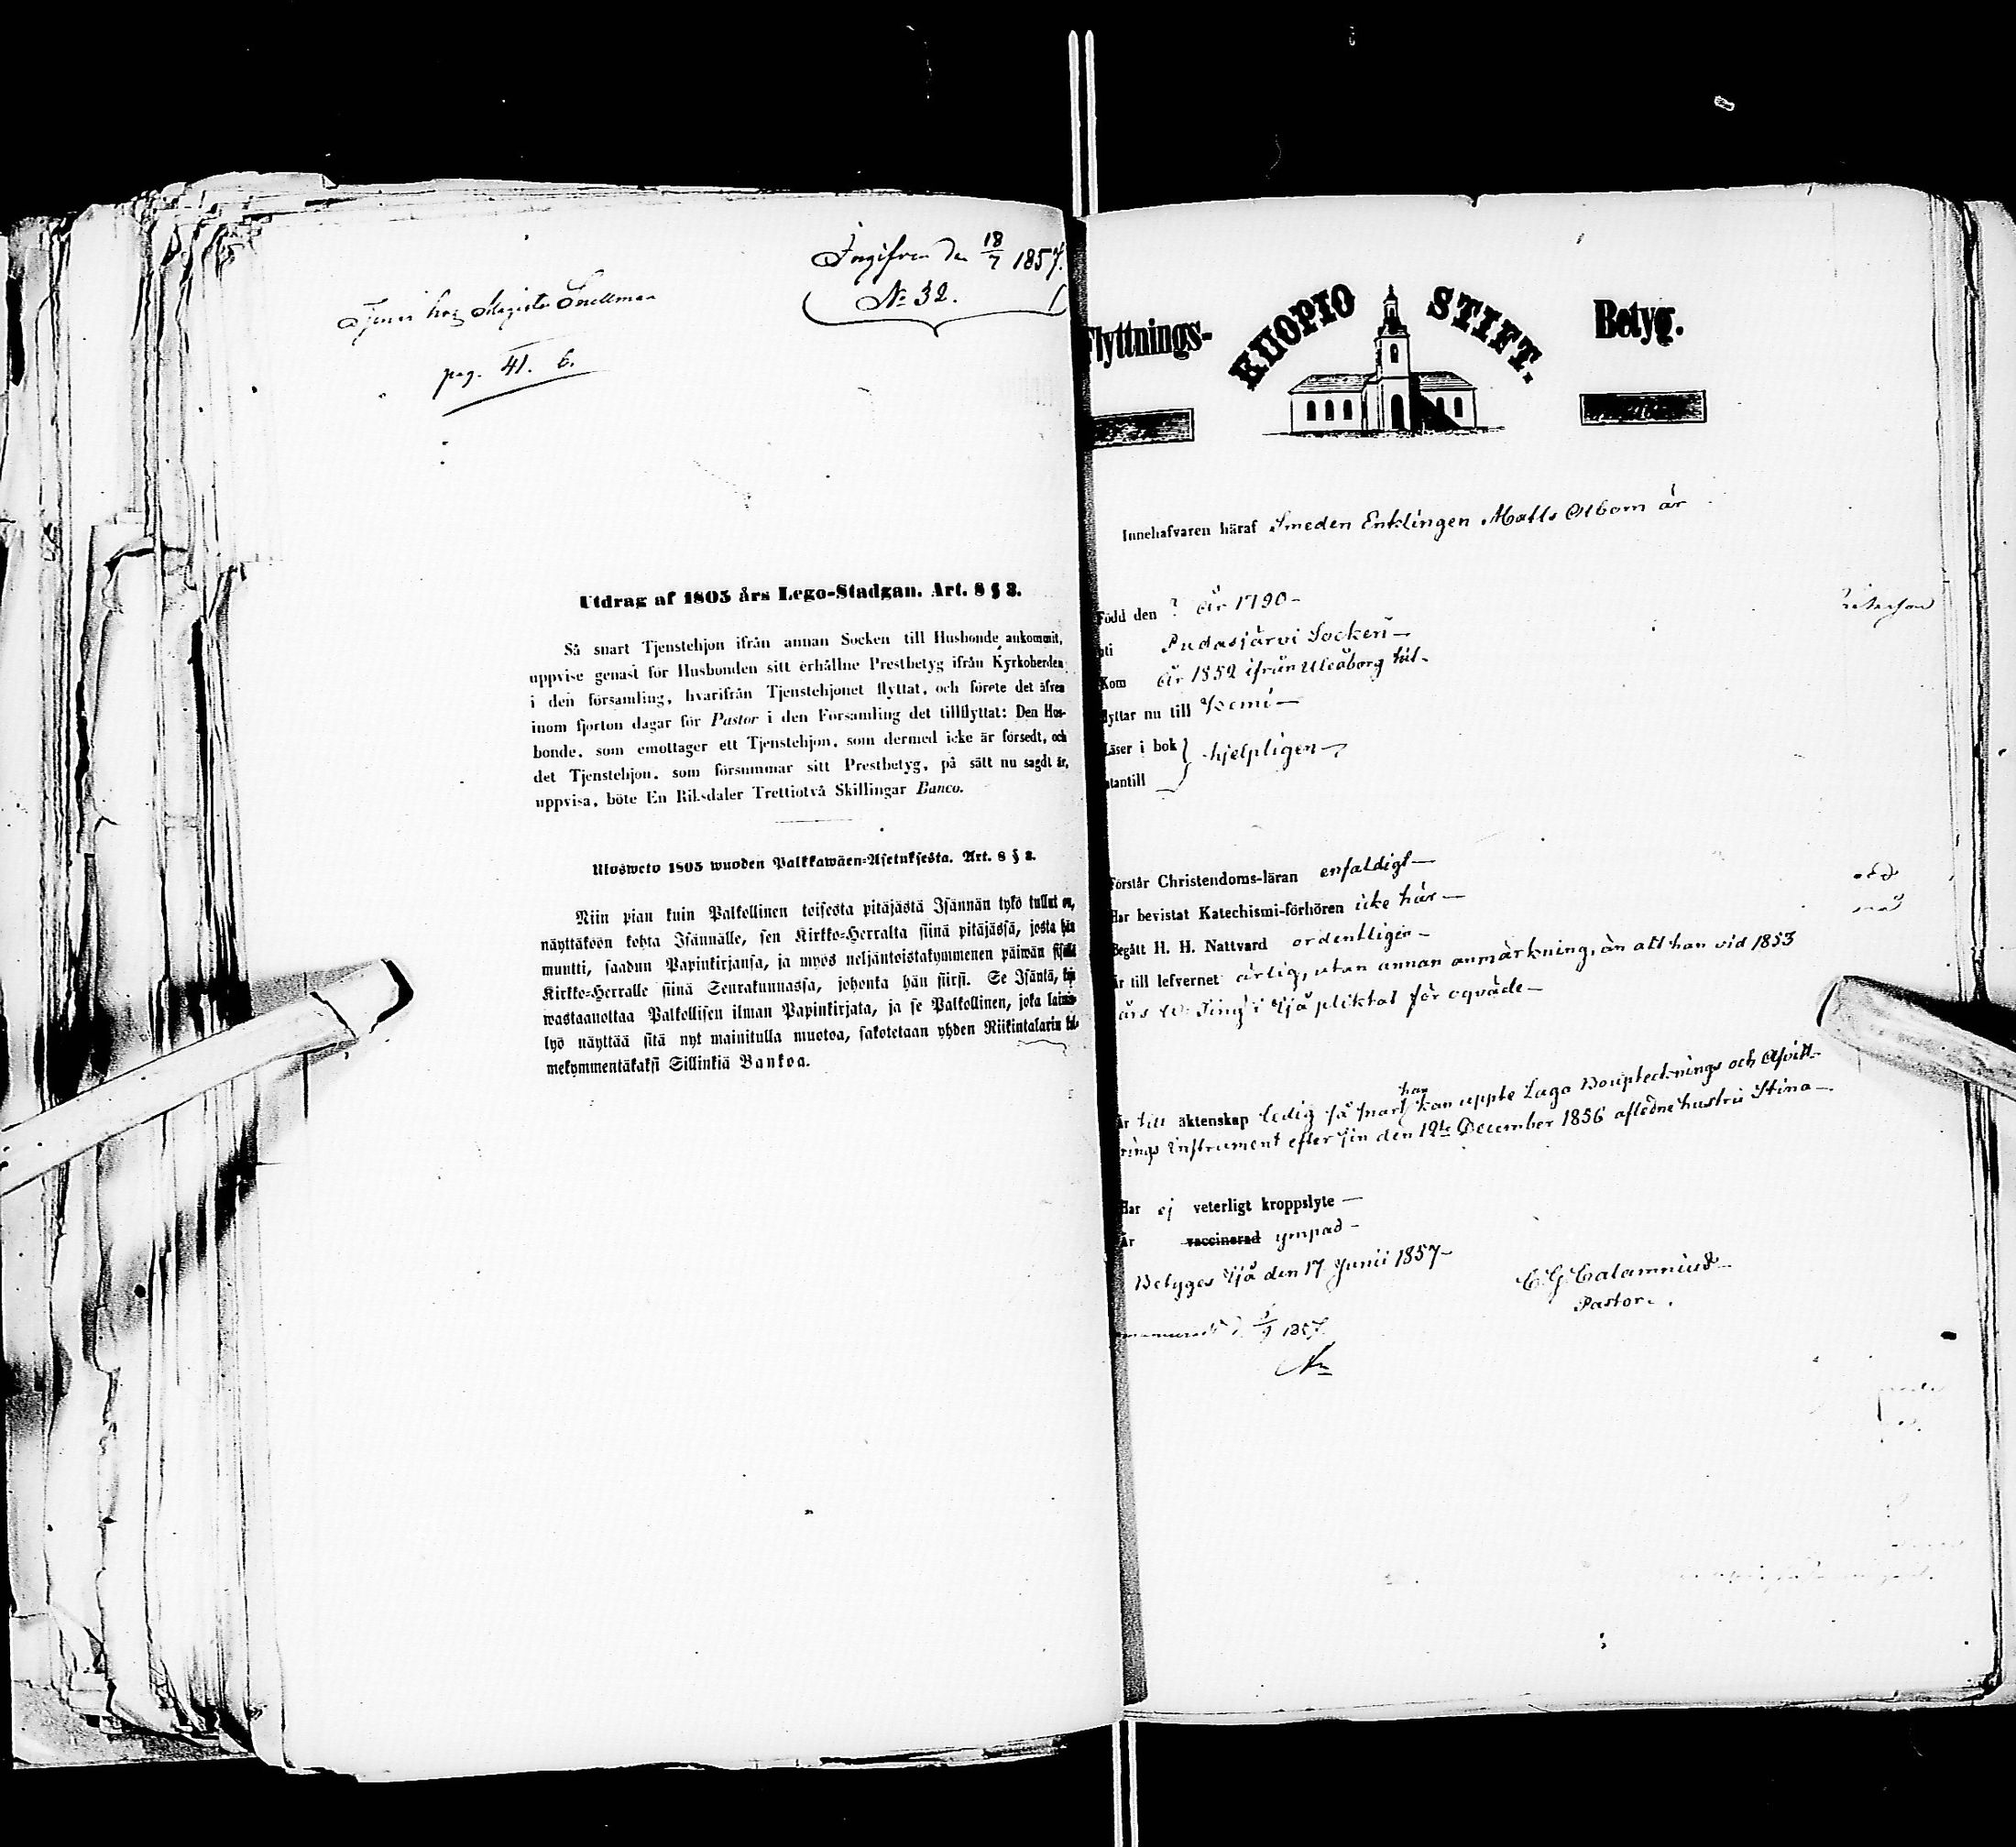 Ingifven den 18/7 1857.
No 32.
Tjenar hos Magister Snellman
pag. 41. 6.
Utdrag af 1805 års Lego-Stadgan. Art. 8 § 2.
Så snart Tjenstehjon ifrån annan Socken till Husbonde ankommit,
uppvise genast för Husbonden sitt erhållne Prestbetyg ifrån Kyrkoherden
i den församling, hvarifrån Tjenstehjonet flyttat, och förete det äfven
inom fjorton dagar för Pastor i den Församling det tillflyttat: Den Hus-
bonde, som emottager ett Tjenstehjon, som dermed icke är försedt, och
det Tjenstehjon, som försummar sitt Prestbetyg, på sätt nu sagdt är,
uppvisa, böte En Riksdaler Trettiotvå Skillingar Banco.
Ulosweto 1805 wuoden Palkkawäen-Asetuksesta. Art. 8 § 2.
Niin pian kuin Palkollinen toisesta pitäjästä Isännän tykö tullut on,
näyttäköön kohta Isännälle, sen Kirkko-Herralta siinä pitäjässä, josta hän
muutti, saadun Papinkirjansa, ja myös neljäntoistakymmenen päiwän sisällä
Kirkko-Herralle siinä Seurakunnassa, johonka hän siirsi. Se Isäntä, kuin
wastaanottaa Palkollisen ilman Papinkirjata, ja se Palkollinen, joka laimin-
lyö näyttää sitä nyt mainitulla muotoa, sakotetaan yhden Riikintalarin kol-
mekymmentäkaksi Sillinkiä Bankoa.
Flyttnings- KUOPIO STIFT. Betyg.
Innehafvaren häraf Smeden Enklingen Matts Alborn är
Född den ? år 1790-
uti Pudasjärvi Socken-
Kom år 1852 ifrån Uleåborg hit-
flyttar nu till Kemi-
Läser i bok } hjelpligen-
utantill
Förstår Christendoms-läran enfaldigt-
Har bevistat Katechismi-förhören icke här-
Begått H. H. Nattvard ordentligen-
Är till lefvernet ärlig, utan annan anmärkning, än att han vid 1853
års W. Ting i Ijå pliktat för oqväde-
Är till äktenskap ledig så snart han kan uppte Laga Bouptecknings och Afvitt-
rings Instrument efter sin den 12te December 1856 aflidne hustru Stina-
Har ej veterligt kroppslyte-
Är vaccinerad ympad-
Betyges Ijå den 17 Junii 1857-
C G Calamnius
Pastor.
1857.